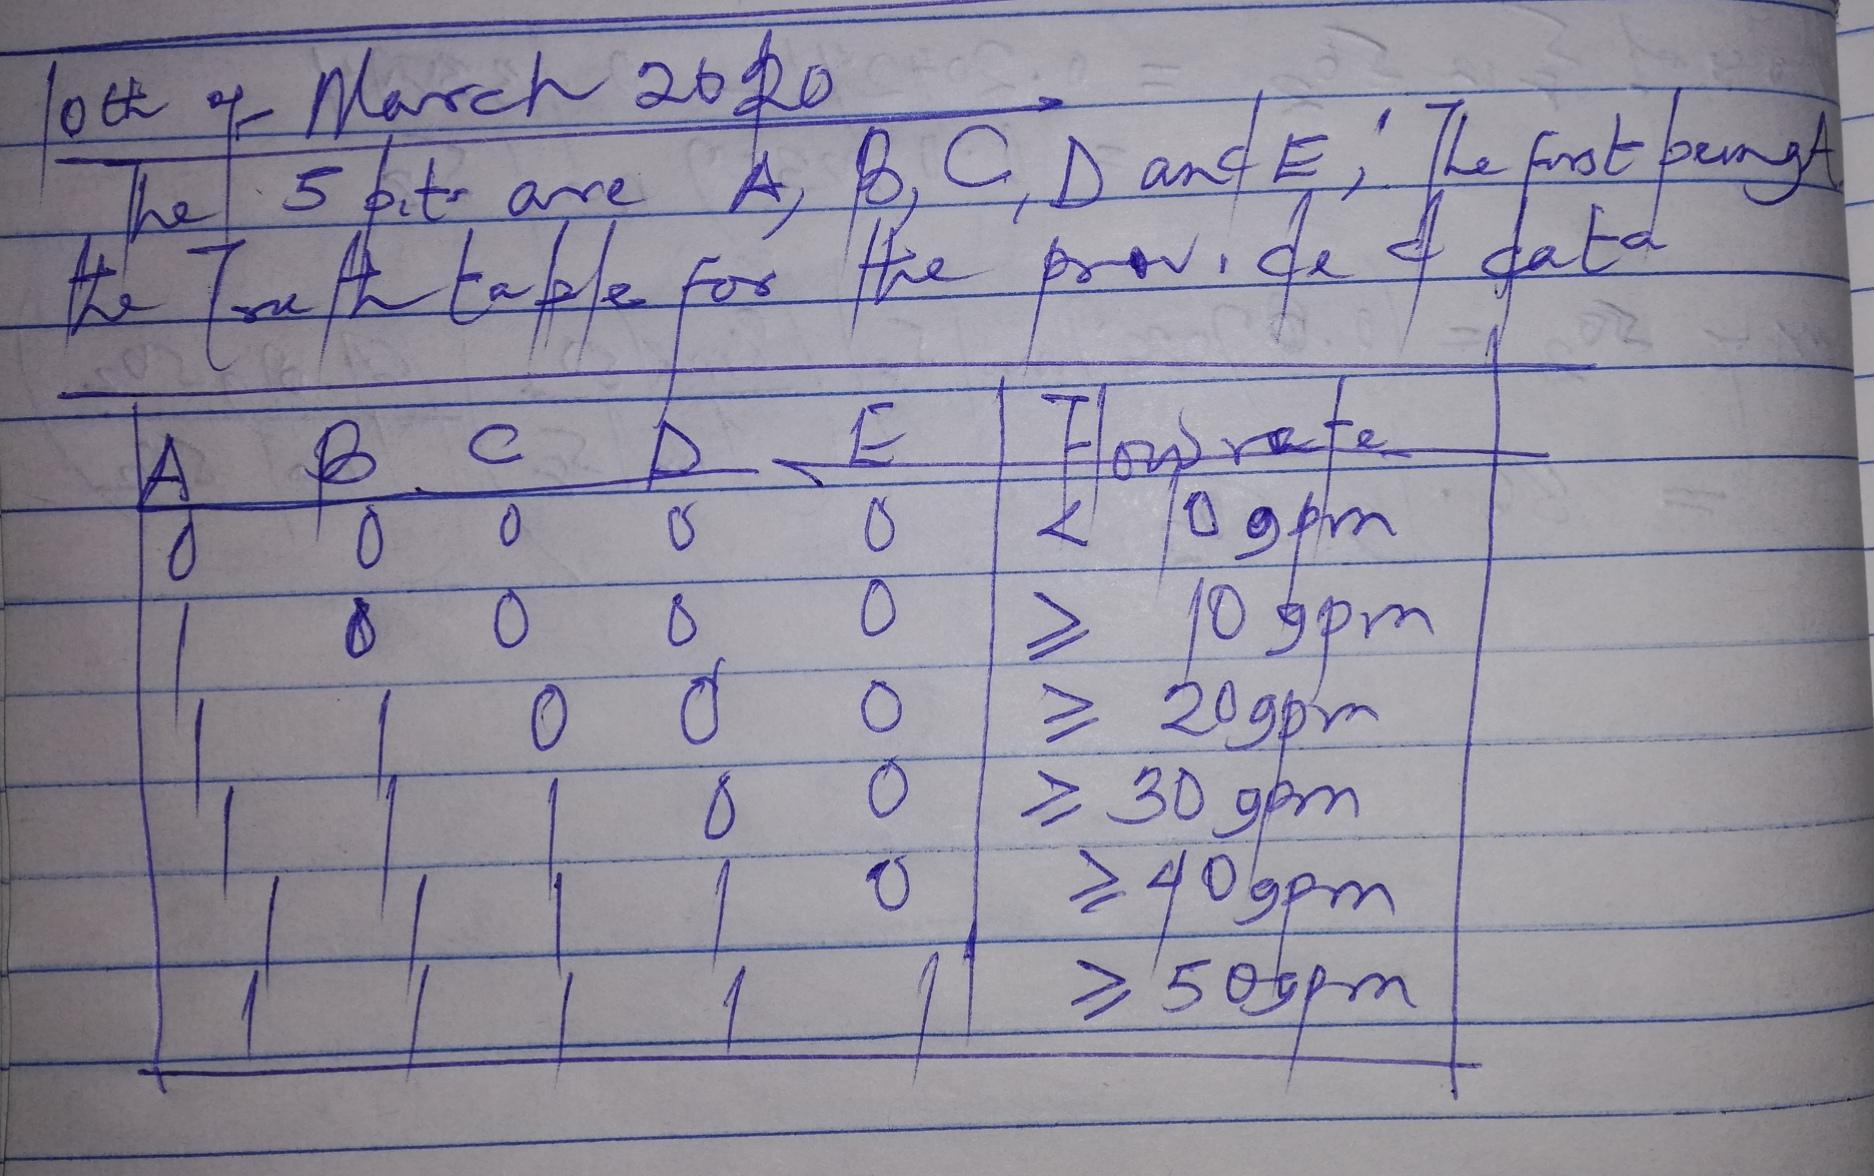 10th of March 2020
The 5 bits are A, B, C, D and E, The first being A
the Truth table for the provided data
A B C D E Flow rate
0 0 0 0 0 < 10 gpm
1 0 0 0 0 ≥ 10 gpm
1 1 0 0 0 ≥ 20 gpm
1 1 1 0 0 ≥ 30 gpm
1 1 1 1 0 ≥ 40 gpm
1 1 1 1 1 ≥ 50 gpm